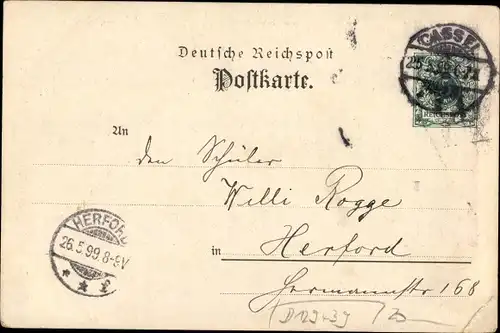 Deutsche Reichspost
Postkarte.
CASSEL
25.5.99
An
den Schüler
Willi Rogge
in Herford
Hermannstr 168
HERFORD
26.5.99.8-9V